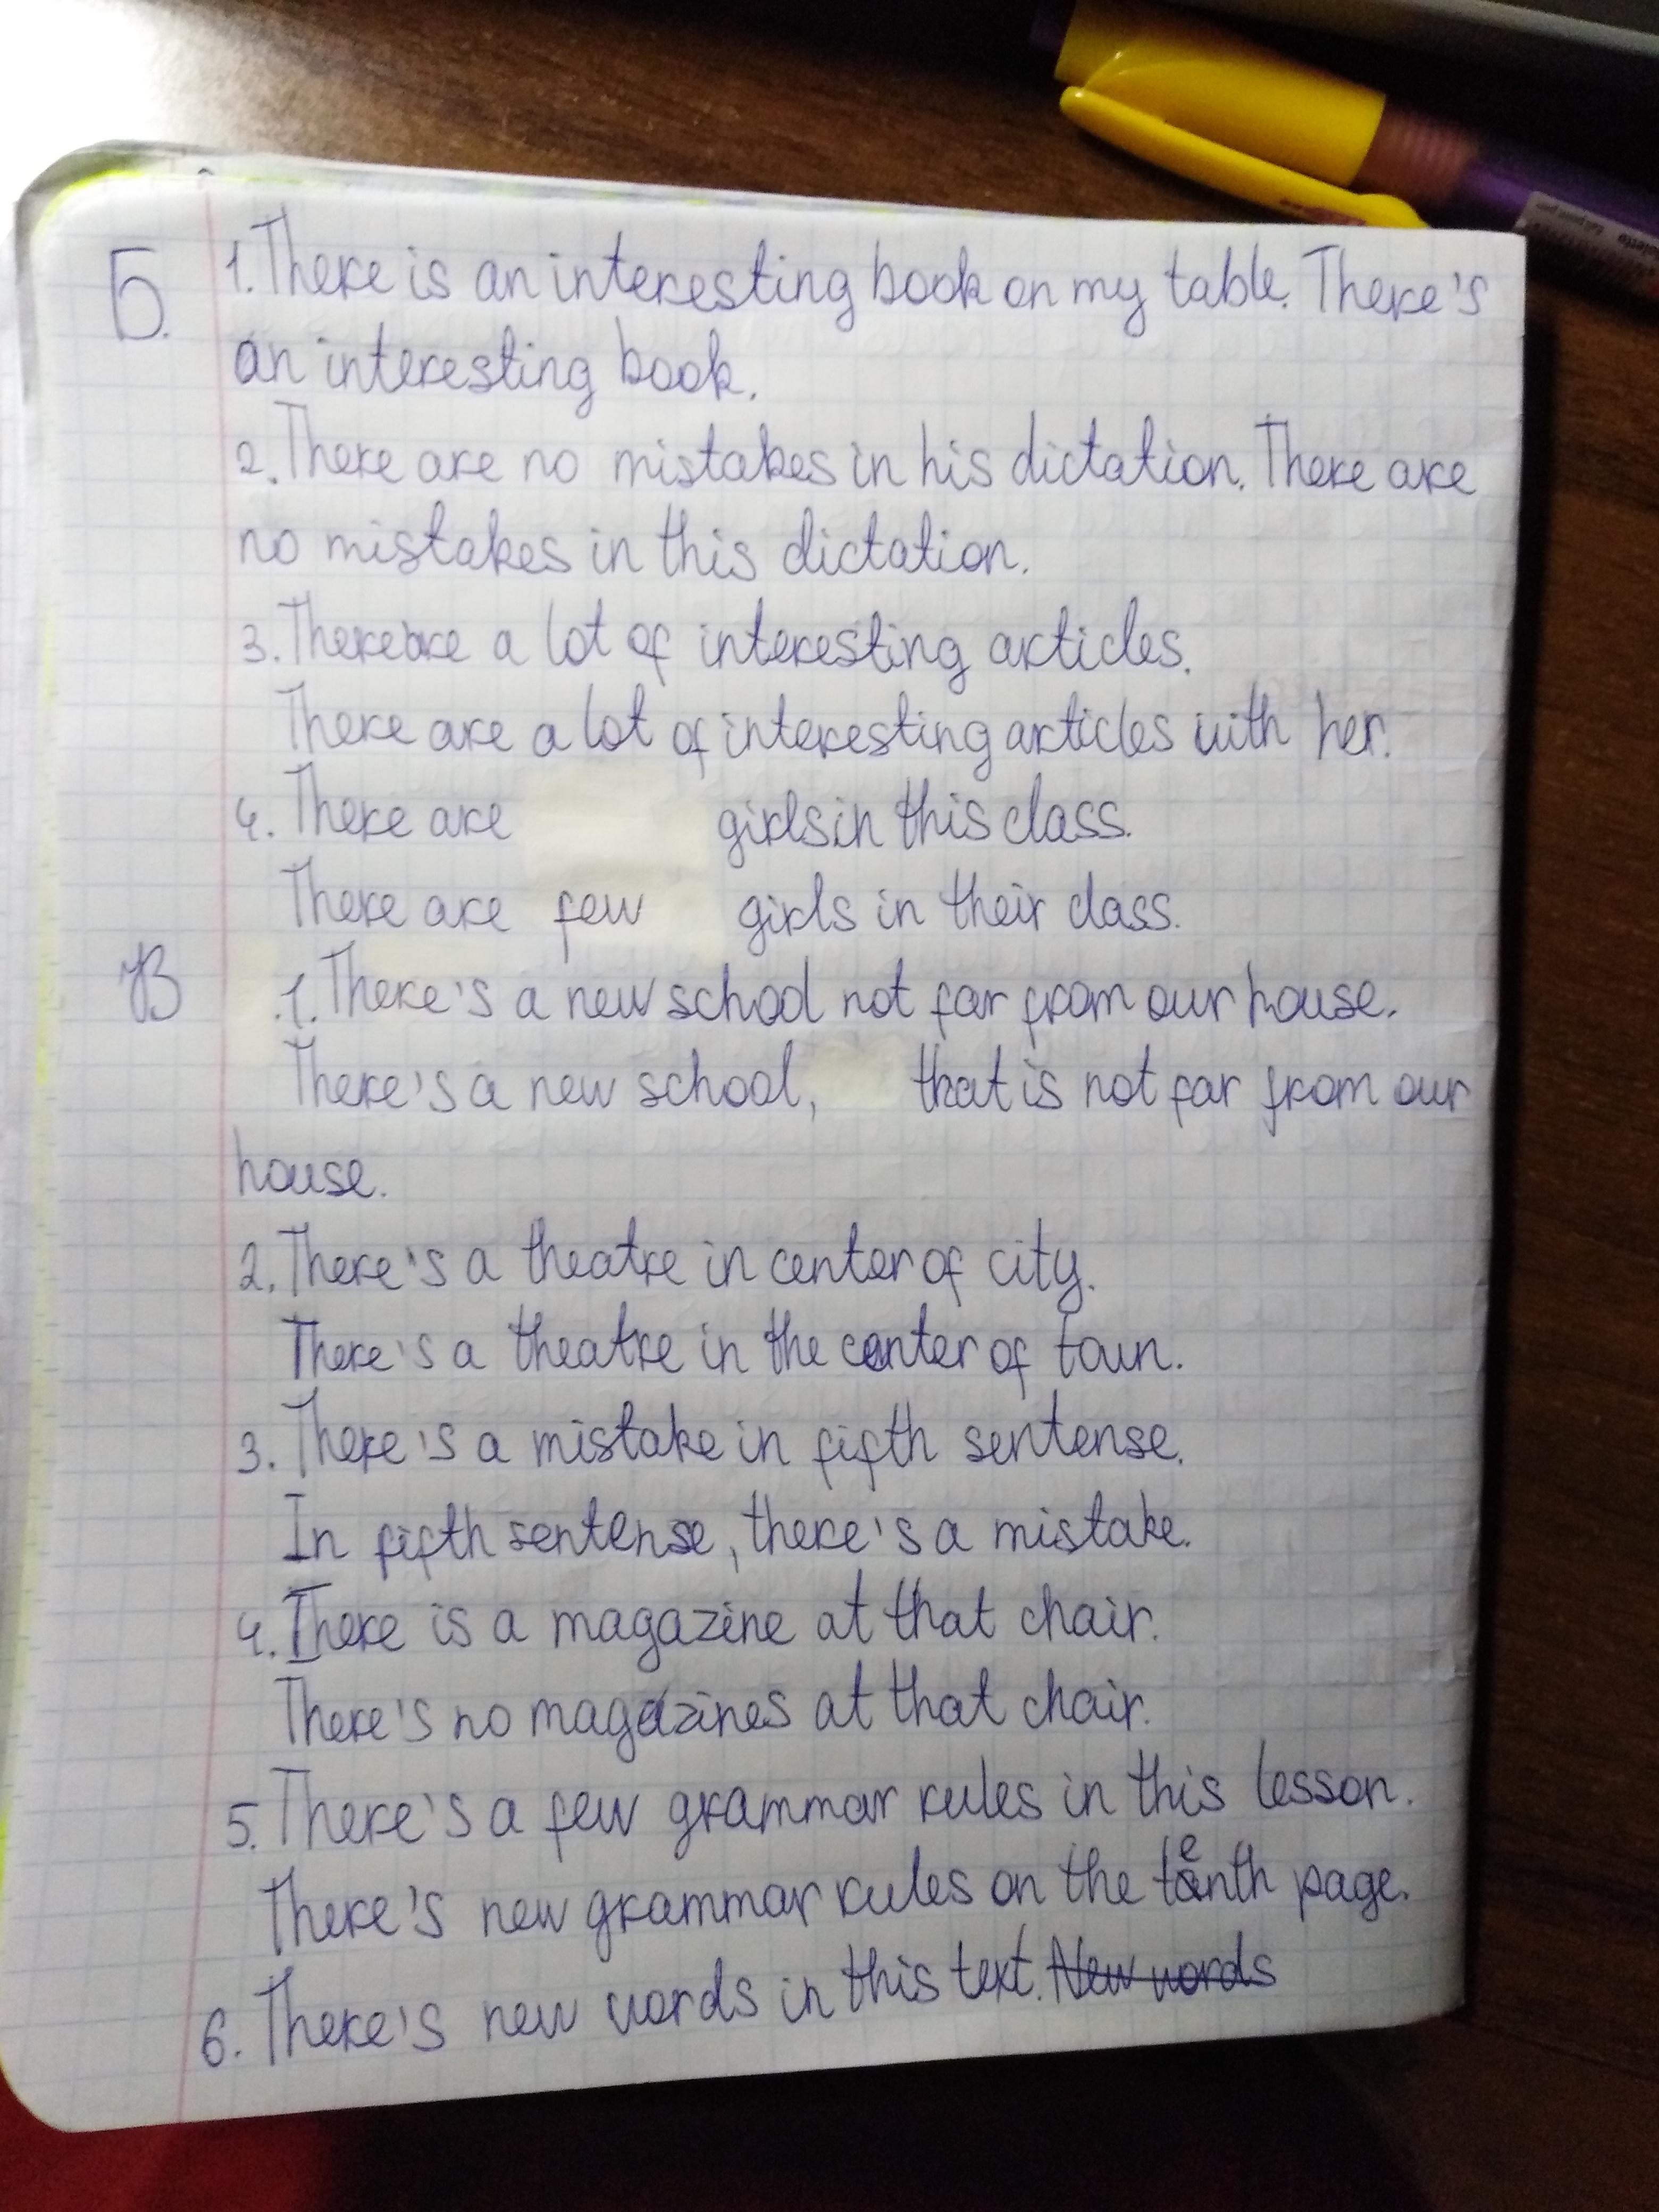 Б. 1. There is an interesting book on my table. There's
an interesting book.
2. There are no mistakes in his dictation. There are
no mistakes in this dictation.
3. There are a lot of interesting articles.
There are a lot of interesting articles with her.
4. There are girls in this class.
There are few girls in their class.
В 1. There's a new school not far from our house.
There's a new school, that is not far from our
house.
2. There's a theatre in center of city.
There's a theatre in the center of town.
3. There's a mistake in fifth sentense.
In fifth sentense, there's a mistake.
4. There is a magazine at that chair.
There's no magazines at that chair.
5. There's a few grammar rules in this lesson.
There's new grammar rules on the tenth page.
6. There's new words in this text. New words